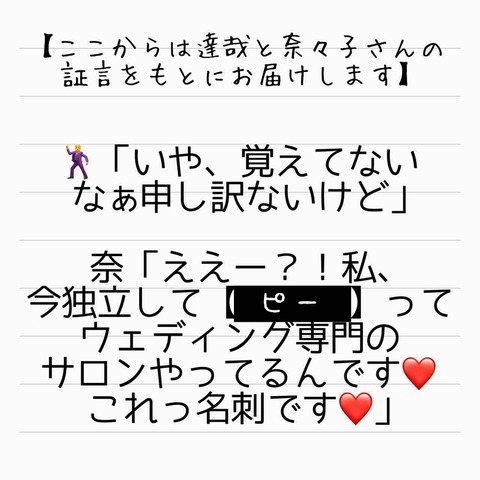 【ここからは達哉と奈々子さんの
証言をもとにお届けします】
🕺「いや、覚えてない
なぁ申し訳ないけど」
奈「ええー？！私、
今独立して【ピー】って
ウェディング専門の
サロンやってるんです❤️
これっ名刺です❤️」